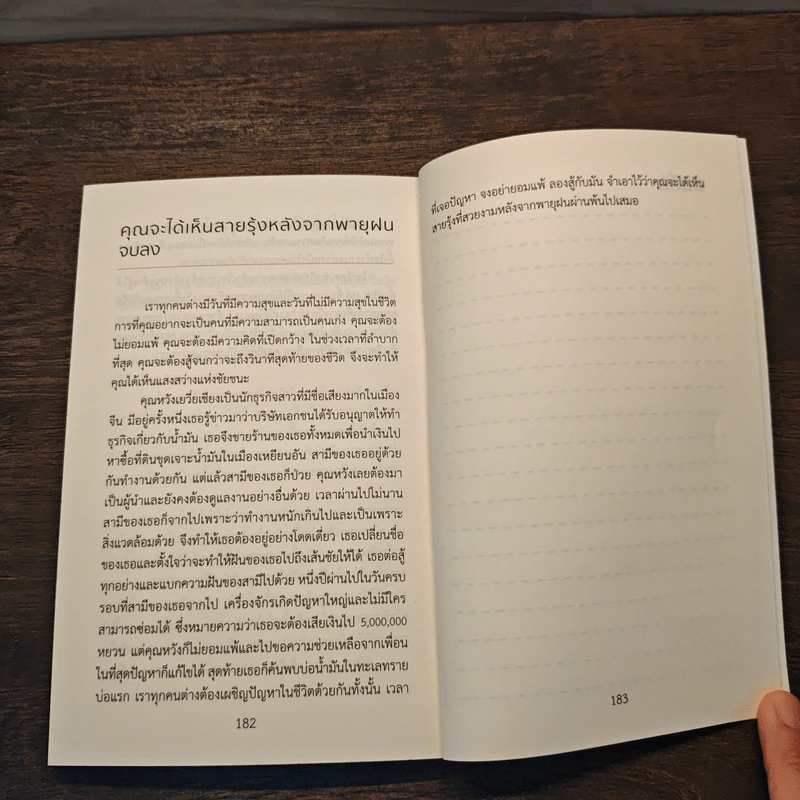 คุณจะได้เห็นสายรุ้งหลังจากพายุฝน
จบลง
เราทุกคนต่างมีวันที่มีความสุขและวันที่ไม่มีความสุขในชีวิต
การที่คุณอยากจะเป็นคนที่มีความสามารถเป็นคนเก่ง คุณจะต้อง
ไม่ยอมแพ้ คุณจะต้องมีความคิดที่เปิดกว้าง ในช่วงเวลาที่ลำบาก
ที่สุด คุณจะต้องสู้จนกว่าจะถึงวินาทีสุดท้ายของชีวิต จึงจะทำให้
คุณได้เห็นแสงสว่างแห่งชัยชนะ
คุณหวังเยวี่ยเซียงเป็นนักธุรกิจสาวที่มีชื่อเสียงมากในเมือง
จีน มีอยู่ครั้งหนึ่งเธอรู้ข่าวมาว่าบริษัทเอกชนได้รับอนุญาตให้ทำ
ธุรกิจเกี่ยวกับน้ำมัน เธอจึงขายร้านของเธอทั้งหมดเพื่อนำเงินไป
หาซื้อที่ดินขุดเจาะน้ำมันในเมืองเหยียนอัน สามีของเธออยู่ด้วย
กันทำงานด้วยกัน แต่แล้วสามีของเธอก็ป่วย คุณหวังเลยต้องมา
เป็นผู้นำและยังคงต้องดูแลงานอย่างอื่นด้วย เวลาผ่านไปไม่นาน
สามีของเธอก็จากไปเพราะว่าทำงานหนักเกินไปและเป็นเพราะ
สิ่งแวดล้อมด้วย จึงทำให้เธอต้องอยู่อย่างโดดเดี่ยว เธอเปลี่ยนชื่อ
ของเธอและตั้งใจว่าจะทำให้ฝันของเธอไปถึงเส้นชัยให้ได้ เธอต่อสู้
ทุกอย่างและแบกความฝันของสามีไปด้วย หนึ่งปีผ่านไปในวันครบ
รอบที่สามีของเธอจากไป เครื่องจักรเกิดปัญหาใหญ่และไม่มีใคร
สามารถซ่อมได้ ซึ่งหมายความว่าเธอจะต้องเสียเงินไป 5,000,000
หยวน แต่คุณหวังก็ไม่ยอมแพ้และไปขอความช่วยเหลือจากเพื่อน
ในที่สุดปัญหาก็แก้ไขได้ สุดท้ายเธอก็ค้นพบบ่อน้ำมันในทะเลทราย
บ่อแรก เราทุกคนต่างต้องเผชิญปัญหาในชีวิตด้วยกันทั้งนั้น เวลา
182
ที่เจอปัญหา จงอย่ายอมแพ้ ลองสู้กับมัน จำเอาไว้ว่าคุณจะได้เห็น
สายรุ้งที่สวยงามหลังจากพายุฝนผ่านพ้นไปเสมอ
183